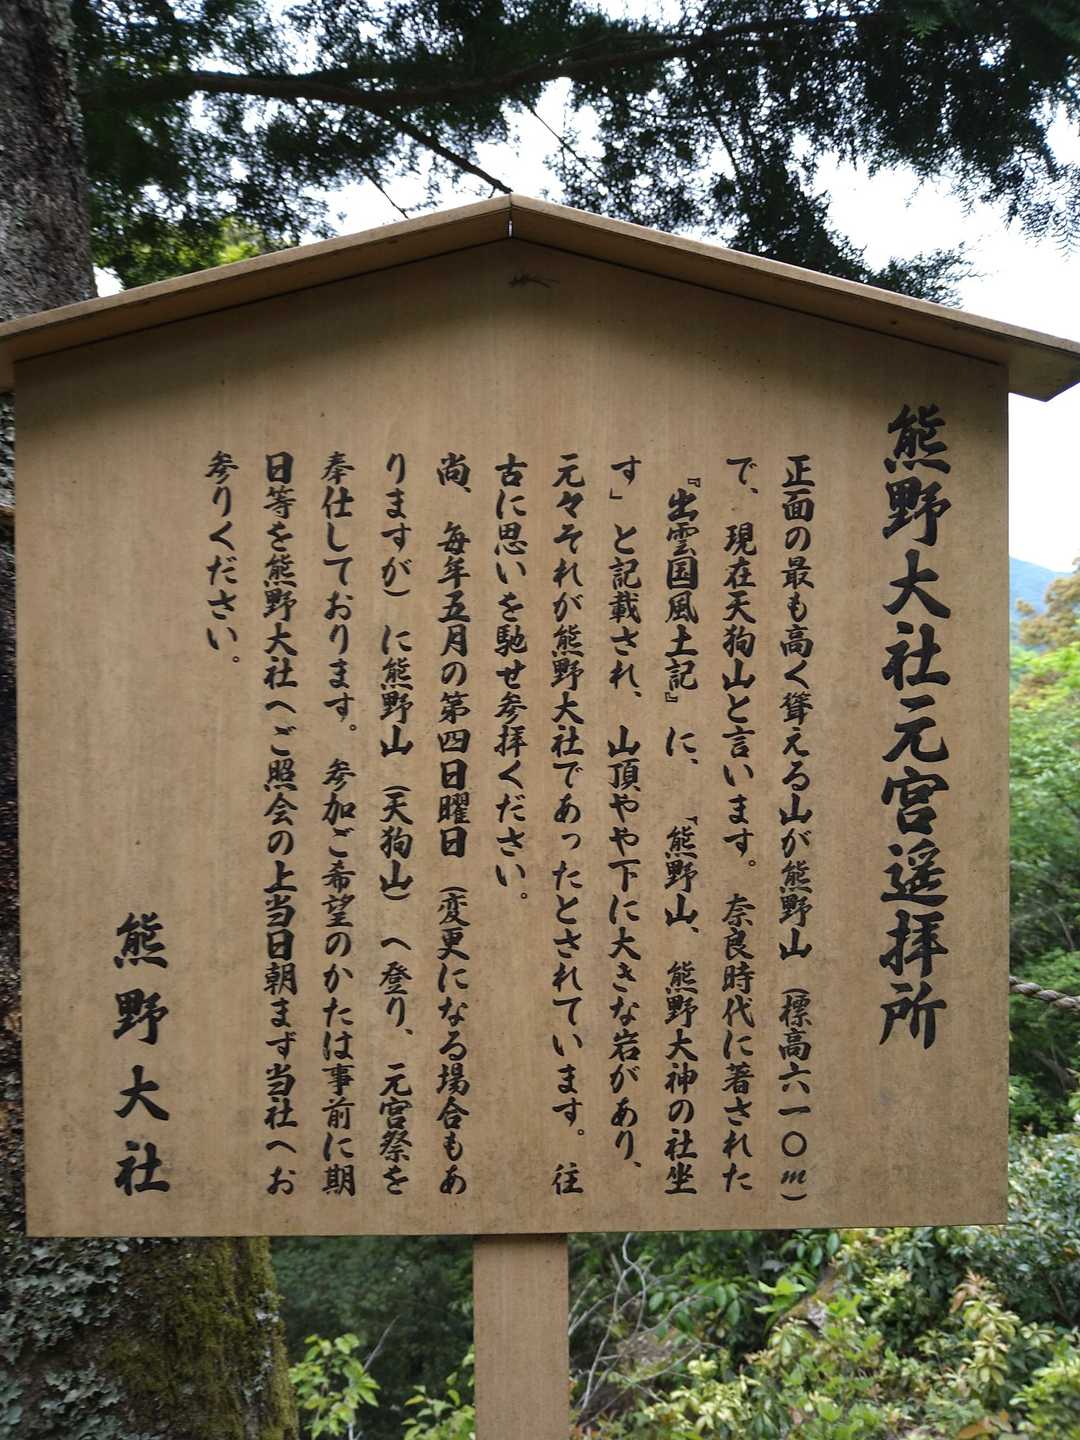 熊野大社元宮遥拝所
正面の最も高く聳える山が熊野山(標高六一〇m)
で、現在天狗山と言います。奈良時代に著された
『出雲国風土記』に、「熊野山、熊野大神の社坐
す」と記載され、山頂やや下に大きな岩があり、
元々それが熊野大社であったとされています。往
古に思いを馳せ参拝ください。
尚、毎年五月の第四日曜日(変更になる場合もあ
りますが)に熊野山(天狗山)へ登り、元宮祭を
奉仕しております。参加ご希望のかたは事前に期
日等を熊野大社へご照会の上当日朝まず当社へお
参りください。
熊野大社